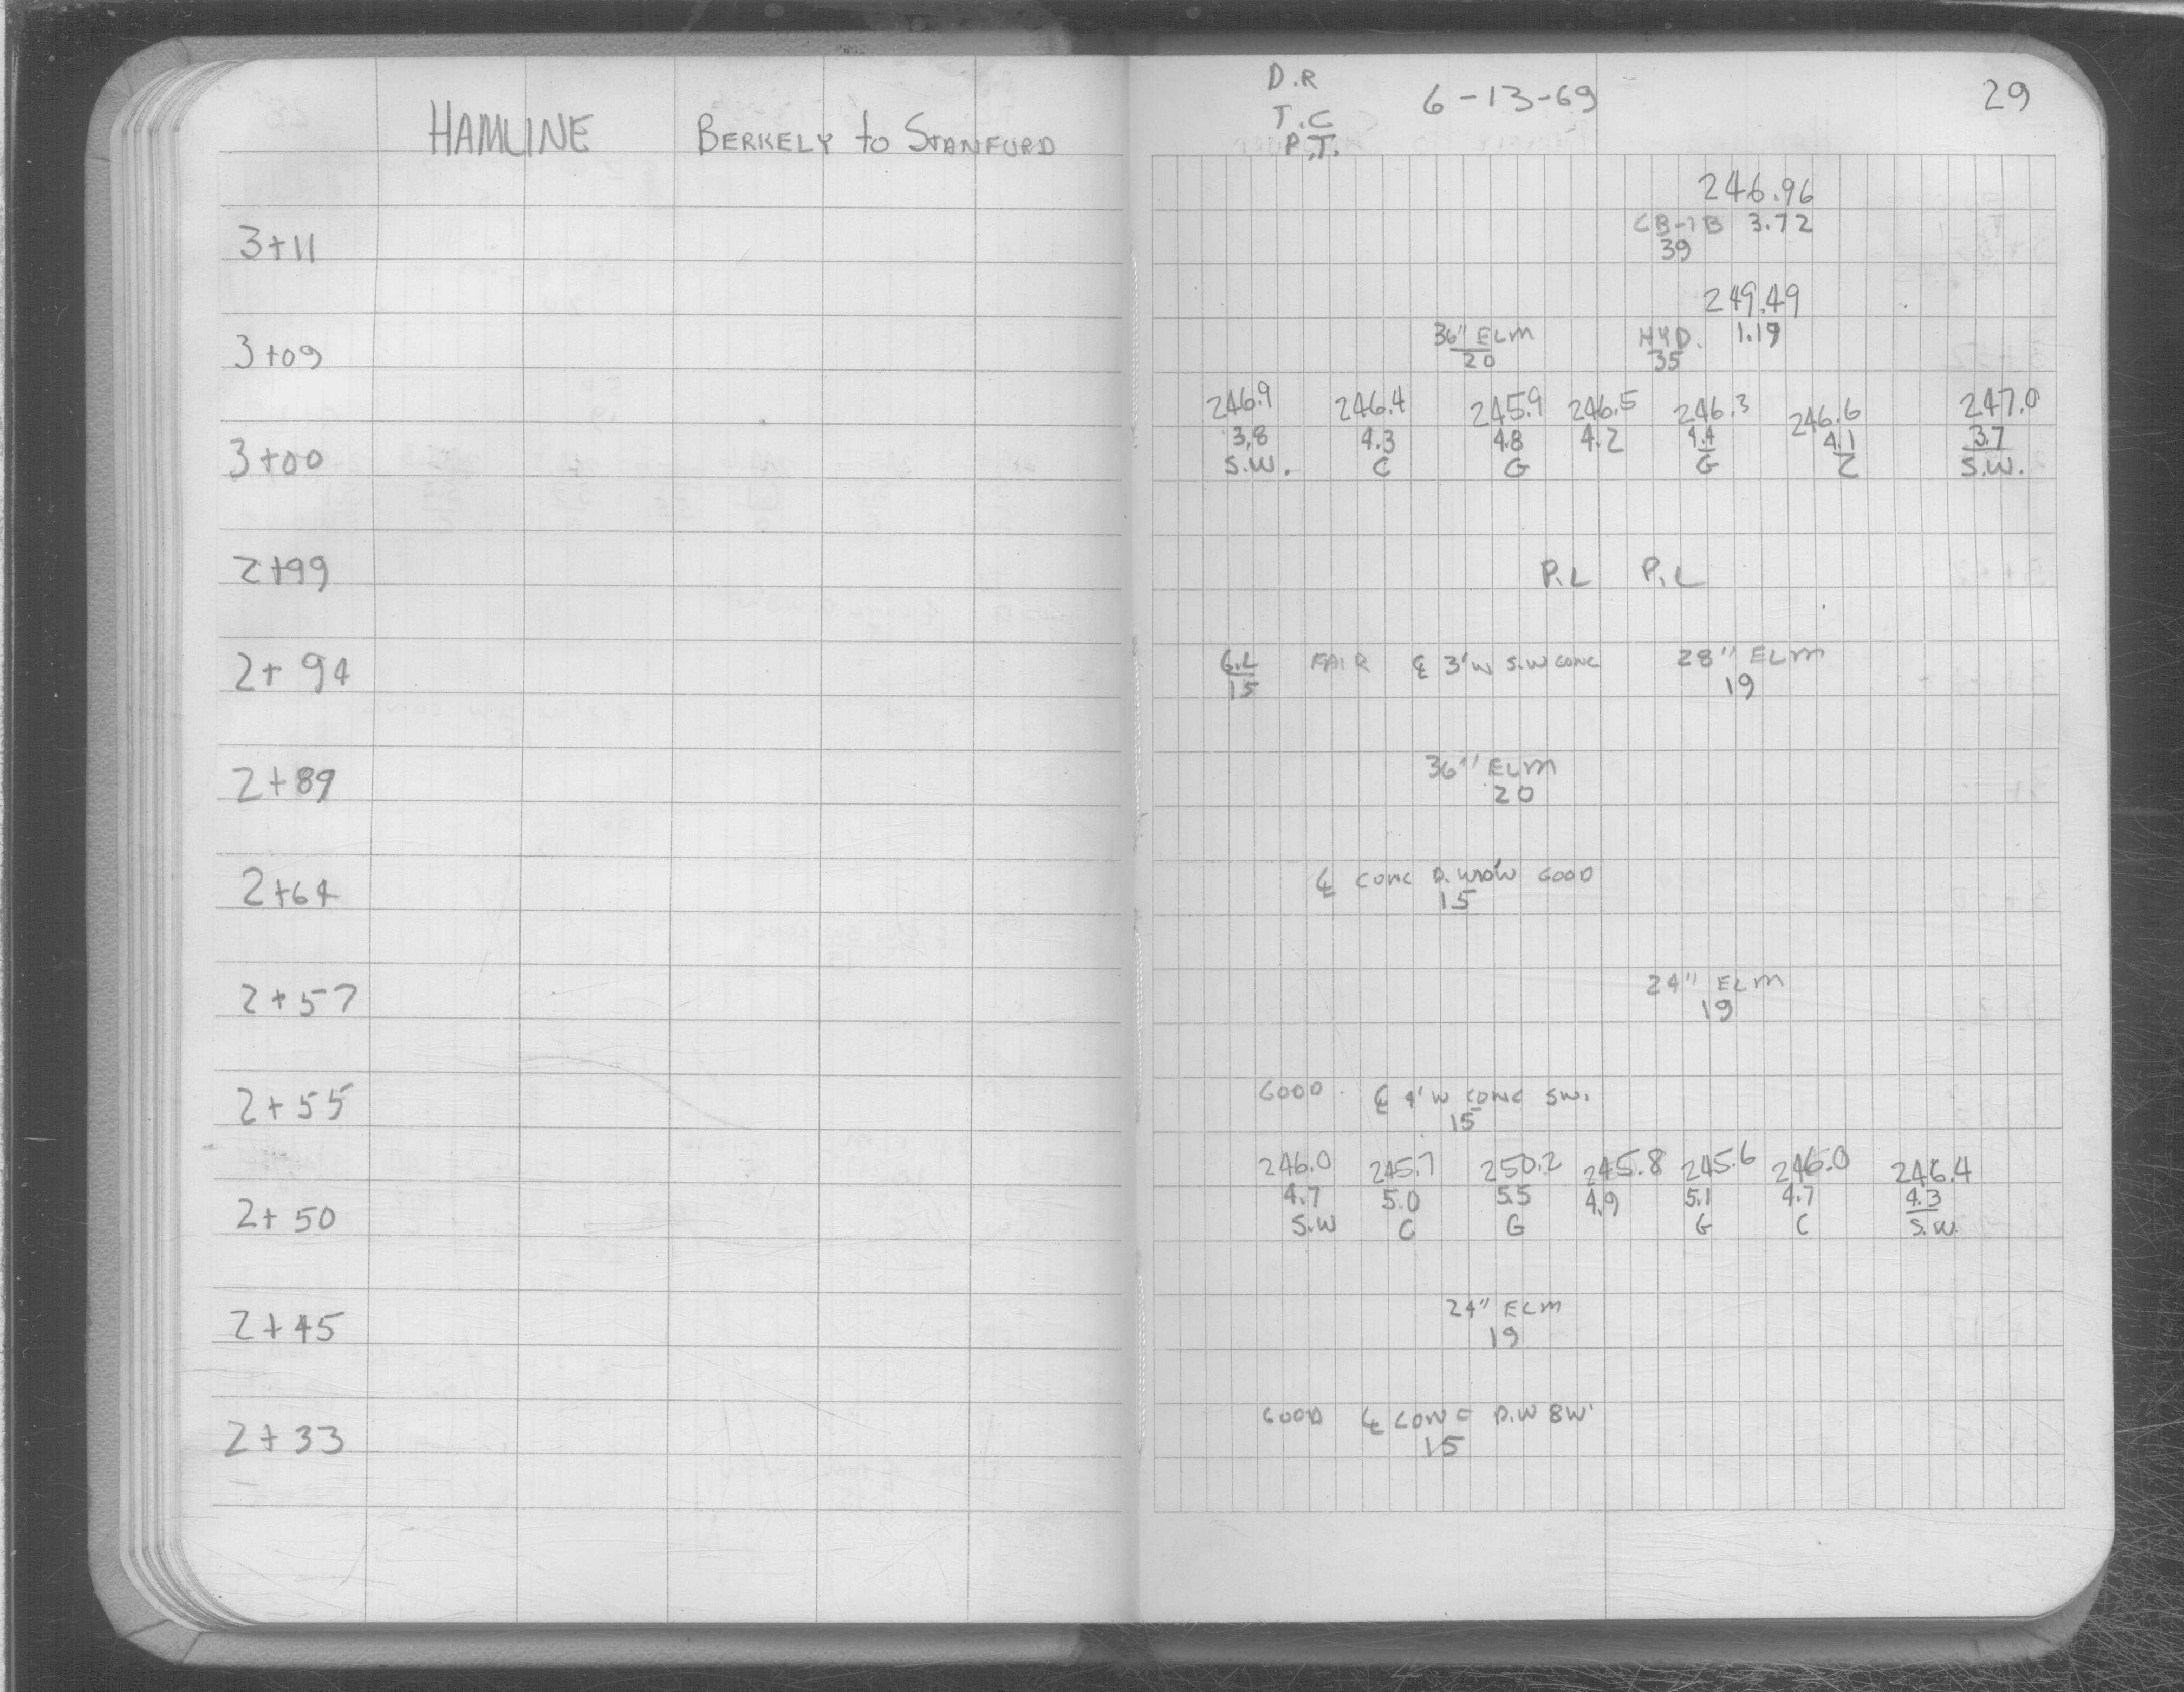 HAMLINE BERKELY to STANFORD
D.R
T.C
P.T.
6-13-69
29
246.96
3+11 CB-1B 3.72
39
249.49
3+09 36" ELM HYD. 1.19
20 35
246.9 246.4 245.9 246.5 246.3 246.6 247.0
3.8 4.3 4.8 4.2 4.4 4.1 3.7
3+00 S.W. C G G C S.W.
2+99 P.L P.L
2+94 G.L FAIR ℄ 3'W S.W CONC 28" ELM
15 19
2+89 36" ELM
20
2+64 ℄ CONC D.W 10'W GOOD
15
2+57 24" ELM
19
2+55 GOOD. ℄ 4'W CONC SW.
15
246.0 245.7 250.2 245.8 245.6 246.0 246.4
4.7 5.0 5.5 4.9 5.1 4.7 4.3
2+50 S.W C G G C S.W.
2+45 24" ELM
19
2+33 GOOD ℄ CONC D.W 8W'
15